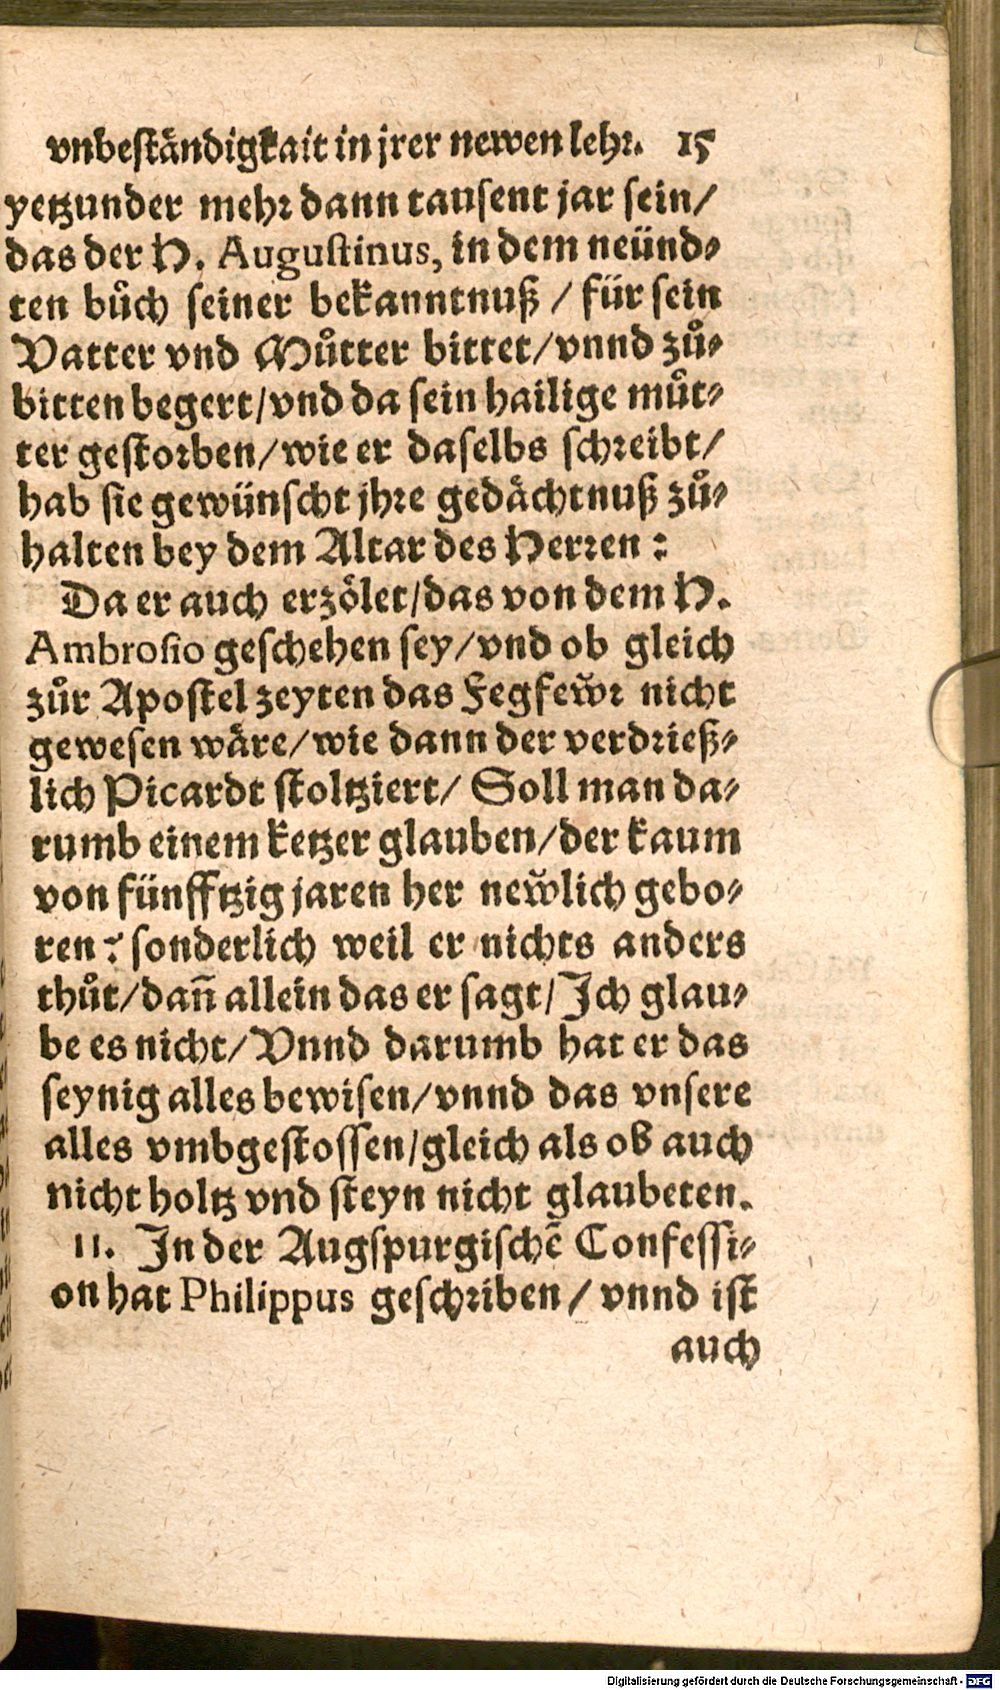 vnbeständigkait in jrer newen lehr. 15
yetzunder mehr dann tausent jar sein/
das der H. Augustinus, in dem neünd⸗
ten bůch seiner bekanntnuß / für sein
Vatter vnd Můtter bittet/vnnd zů⸗
bitten begert/vnd da sein hailige můt⸗
ter gestorben/wie er daselbs schreibt/
hab sie gewünscht jhre gedächtnuß zů⸗
halten bey dem Altar des Herren :
Da er auch erzölet/das von dem H.
Ambrosio geschehen sey/vnd ob gleich
zůr Apostel zeyten das Fegfew̃r nicht
gewesen wäre/wie dann der verdrieß⸗
lich Picardt stoltziert/ Soll man da⸗
rumb einem ketzer glauben/der kaum
von fünfftzig jaren her new̃lich gebo⸗
ren? sonderlich weil er nichts anders
thůt/dañ allein das er sagt/Ich glau⸗
be es nicht/Vnnd darumb hat er das
seynig alles bewisen/vnnd das vnsere
alles vmbgestossen/gleich als ob auch
nicht holtz vnd steyn nicht glaubeten.
11. In der Augspurgischẽ Confessi⸗
on hat Philippus geschriben / vnnd ist
auch
Digitalisierung gefördert durch die Deutsche Forschungsgemeinschaft - DFG